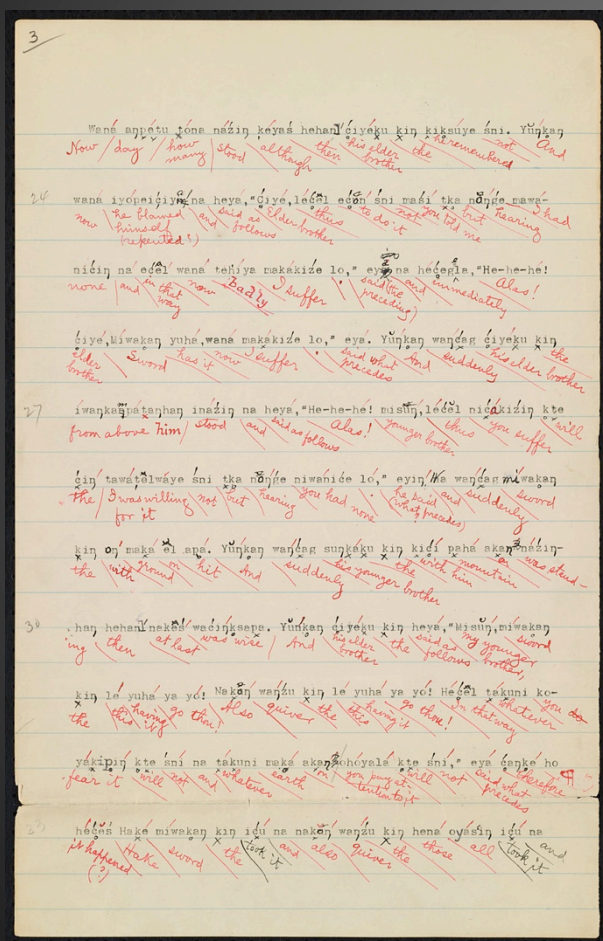 3
Waná aŋpétu tóna nážiŋ kéyaš hehaŋl čiyéku kiŋ kiksúye šni. Yúŋkaŋ
Now / day / how many / stood / although / then / his elder brother / the / he remembered / not / And
24 waná iyópeič̣iyaŋ na heya, "Čiyé, léčel ečóŋ šni maši tka nóŋǧe mawá-
now / he blamed himself (repented!) / and / said as follows / Elder brother / thus / to do it / not / you told me / but / hearing / I had
ničiŋ na ečél waná teȟiya makákiže lo," eya na héčegla, "He-he-hé!
none / and / in that way / now / Badly / I suffer / said (the preceding) / and / immediately / Alas!
čiyé, Míwakaŋ yuhá, waná makákiže lo," eya. Yúŋkaŋ waŋčag čiyéku kiŋ
elder brother / Sword / has it / now / I suffer / said what precedes / And / suddenly / his elder brother / the
27 íwaŋkaŋpátaŋhaŋ inážiŋ na heyá, "He-he-hé! misúŋ, léčel ničákižiŋ kte
from above him / stood / and / said as follows / Alas! / younger brother / thus / you suffer / will
čiŋ tawátelwáye šni tka nóŋǧe niwániče lo," eyiŋ na waŋčag míwakaŋ
the / I was willing for it / not / but / hearing / you had none / he said (what precedes) / and / suddenly / sword
kiŋ oŋ maká él apá. Yúŋkaŋ waŋčag suŋkáku kiŋ kičí pahá akaŋl nážiŋ-
the / with / ground / on / hit / And / suddenly / his younger brother / the / with him / mountain / on / was stand-
30 haŋ hehaŋl nakéš wačíŋksapa. Yúŋkaŋ čiyéku kiŋ heyá, "Misúŋ, míwakaŋ
ing / then / at last / was wise / And / his elder brother / the / said as follows / my younger brother, / sword
kiŋ lé yuhá ya yó! Nakúŋ waŋžu kiŋ le yuhá ya yó! Hečél takuni ko-
the / this / having it / go thou! / Also / quiver / the / this / having it / go thou! / In that way / whatever / you do
yákipiŋ kte šni na takuni maká akaŋl ohoyalá kte šni," eyá čaŋké ho
fear it / will / not / and / whatever / earth / on / you pay attention to it / will / not / said what precedes / therefore / ¶
héčeš Haké míwakaŋ kiŋ ičú na nakúŋ waŋžu kiŋ hená oyásʼiŋ ičú na
it happened (?) / Hake / sword / the / took it / and / also / quiver / the / those / all / took it / and